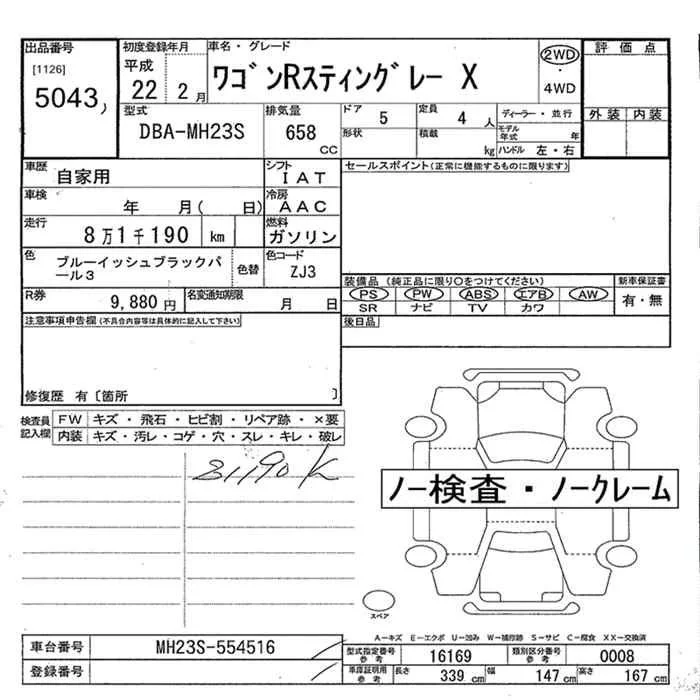 出品番号 初度登録年月 車名・グレード 評価点
[1126] 平成 ワゴンRスティングレー X 2WD
5043 22 2月 ・
4WD
型式 排気量 ドア 5 定員 4人 ディーラー・並行 外装 内装
DBA-MH23S 658 CC 形状 積載 kg モデル年式 年
ハンドル 左・右
車歴 自家用 シフト IAT セールスポイント(正常に機能するものに限ります)
車検 年 月( 日) 冷房 AAC
走行 8万1千190 km 燃料 ガソリン
色 ブルーイッシュブラックパール3 色替 色コード ZJ3
装備品 (純正品に限り○をつけてください) 新車保証書
R券 9,880円 名変通知期限 月 日 PS PW ABS エアB AW 有・無
SR ナビ TV カワ
注意事項申告欄 (不具合内容等は具体的に記入して下さい) 後日品
修復歴 有〔箇所 〕
検査員記入欄 FW キズ・飛石・ヒビ割・リペア跡・×要
内装 キズ・汚レ・コゲ・穴・スレ・キレ・破レ
81190K
ノー検査・ノークレーム
スペア
A-キズ E-エクボ U-凹み W-補修跡 S-サビ C-腐食 XX-交換済
車台番号 MH23S-554516 型式指定番号 参考 16169 類別区分番号 参考 0008
登録番号 車庫証明用 参考 長さ 339 cm 幅 147 cm 高さ 167 cm